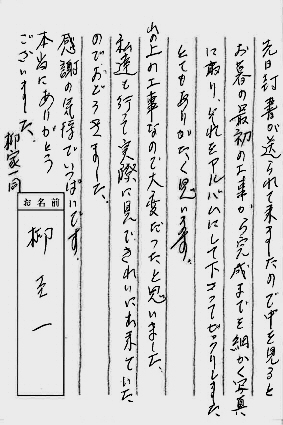 先日封書が送られて来ましたので中を見ると
お墓の最初の工事から完成までを細かく写真
に取り、それをアルバムにして下さってびっくりしました
とてもありがたく思います。
山の上の工事なので大変だったと思いました、
私達も行って実際に見てきれいに出来ていた
のでおどろきました。
感謝の気持でいっぱいです。
本当にありがとう
ございました。
柳家一同
お名前
柳 一